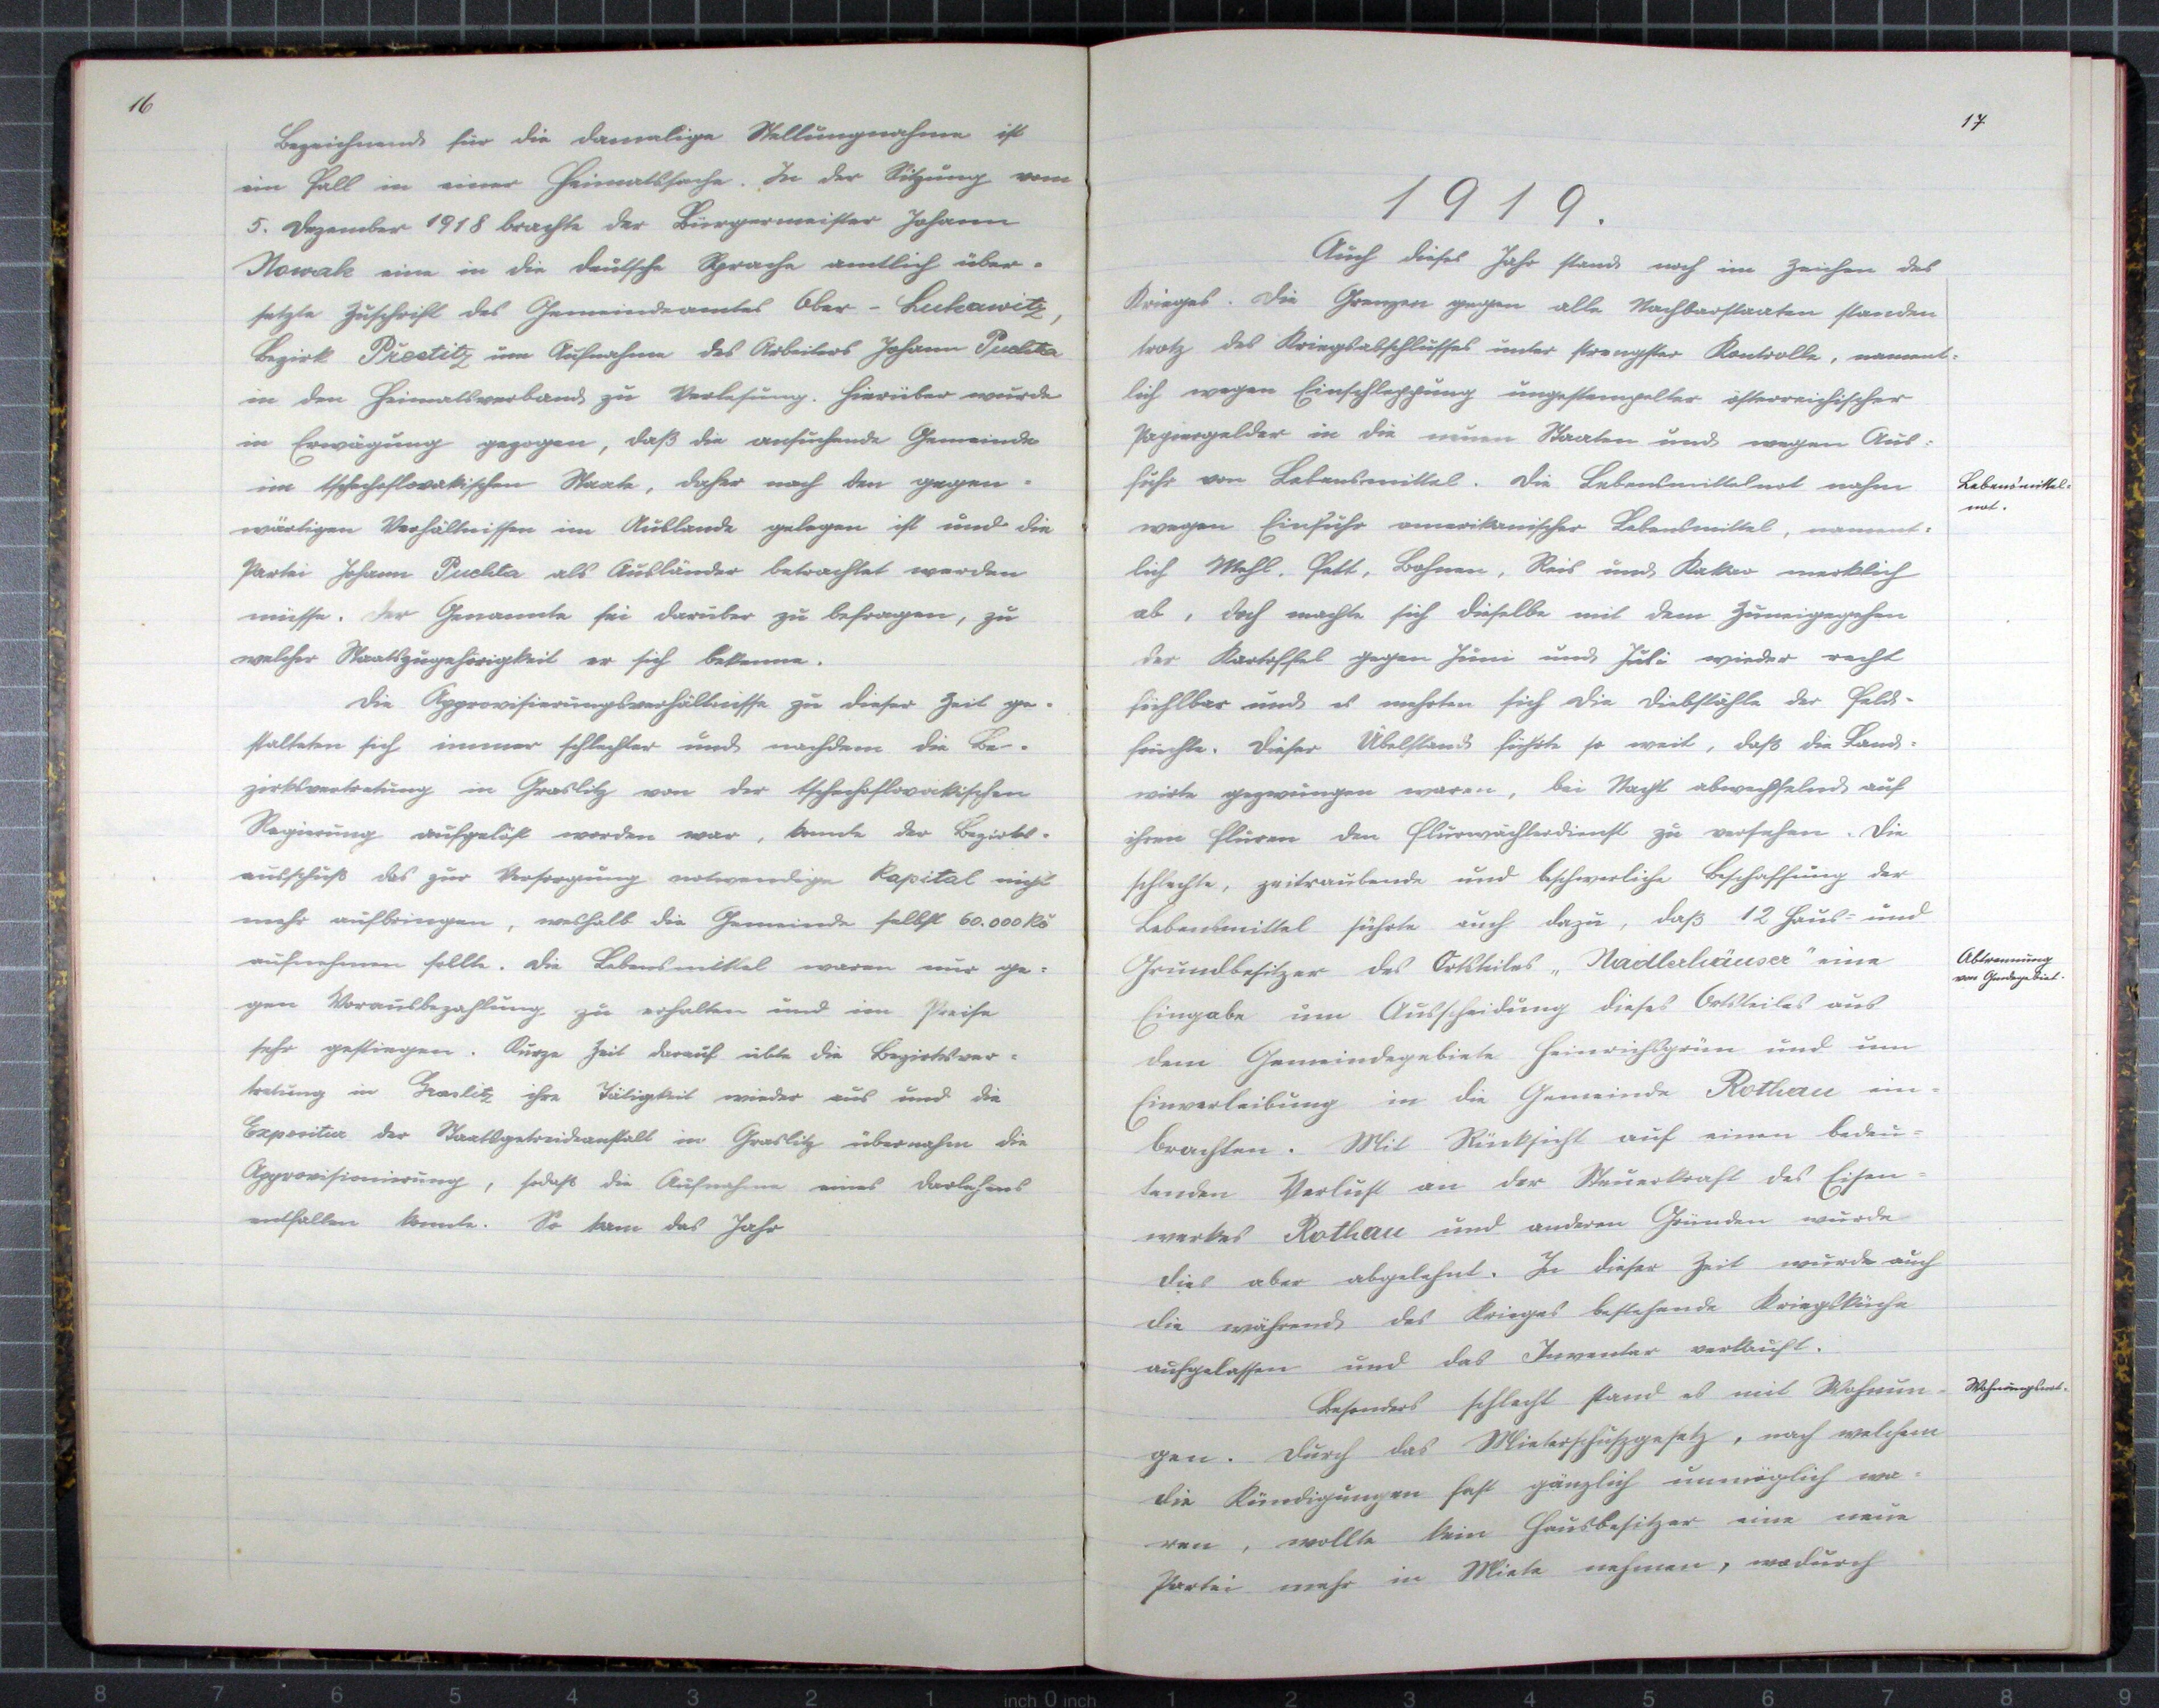 16
Bezeichnend für die damalige Stellungnahme ist
ein Fall in einer Heimatssache. In der Sitzung vom
5. Dezember 1918 brachte der Bürgermeister Johann
Nowak eine in die deutsche Sprache amtlich über-
setzte Zuschrift des Gemeindeamtes Ober-Lukawitz,
Bezirk Přestitz um Aufnahme des Arbeiters Johann Puchta
in den Heimatsverband zu Verlesung. Hierüber wurde
in Erwägung gezogen, daß die ansuchende Gemeinde
im tschechoslovakischen Staate, daher nach den gegen-
wärtigen Verhältnissen im Auslande gelegen ist und die
Partei Johann Puchta als Ausländer betrachtet werden
müsse. Der Genannte sei darüber zu befragen, zu
welcher Staatszugehörigkeit er sich bekenne.
Die Approvisierungsverhältnisse zu dieser Zeit ge-
stalteten sich immer schlechter und nachdem die Be-
zirksvertretung in Graslitz von der tschechoslovakischen
Regierung aufgelöst worden war, konnte der Bezirks-
ausschuß das zur Versorgung notwendige Kapital nicht
mehr aufbringen, weshalb die Gemeinde selbst 60.000 Kč
aufnehmen sollte. Die Lebensmittel waren nur ge-
gen Vorausbezahlung zu erhalten und im Preise
sehr gestiegen. Kurze Zeit darauf übte die Bezirksver-
tretung in Graslitz ihre Tätigkeit wieder aus und die
Expositur der Staatsgetreideanstalt in Graslitz übernahm die
Approvisionierung, sodaß die Aufnahme eines Darlehens
entfallen konnte. So kam das Jahr
17
1919.
Auch dieses Jahr stand noch im Zeichen des
Krieges. Die Grenzen gegen alle Nachbarstaaten standen
trotz des Kriegsabschlusses unter strengster Kontrolle, nament-
lich wegen Einschleppung ungestempelter österreichischer
Papiergelder in die neuen Staaten und wegen Aus-
fuhr von Lebensmittel. Die Lebensmittelnot nahm
Lebensmittel-
not.
wegen Einfuhr amerikanischer Lebensmittel, nament-
lich Mehl, Fett, Bohnen, Reis und Kakao merklich
ab, doch machte sich dieselbe mit dem Zuneigegehen
der Kartoffel gegen Juni und Juli wieder recht
fühlbar und es mehrten sich die Diebstähle der Feld-
früchte. Dieser Übelstand führte so weit, daß die Land-
wirte gezwungen waren, bei Nacht abwechselnd auf
ihren Fluren den Flurwächterdienst zu versehen. Die
schlechte, zeitraubende und beschwerliche Beschaffung der
Lebensmittel führte auch dazu, daß 12 Haus- und
Grundbesitzer des Ortsteiles „Nadlerhäuser" eine
Abtrennung
von Gemdegebiet.
Eingabe um Ausscheidung dieses Ortsteiles aus
dem Gemeindegebiete Heinrichsgrün und um
Einverleibung in die Gemeinde Rothau ein-
brachten. Mit Rücksicht auf einen bedeu-
tenden Verlust an der Steuerkraft des Eisen-
werkes Rothau und anderen Gründen wurde
dies aber abgelehnt. In dieser Zeit wurde auch
die während des Krieges bestehende Kriegsküche
aufgelassen und das Inventar verkauft.
Besonders schlecht stand es mit Wohnun-
Wohnungsnot.
gen. Durch das Mieterschutzgesetz, nach welchem
die Kündigungen fast gänzlich unmöglich wa-
ren, wollte kein Hausbesitzer eine neue
Partei mehr in Miete nehmen, wodurch
8 7 6 5 4 3 2 1 inch 0 inch 1 2 3 4 5 6 7 8 9